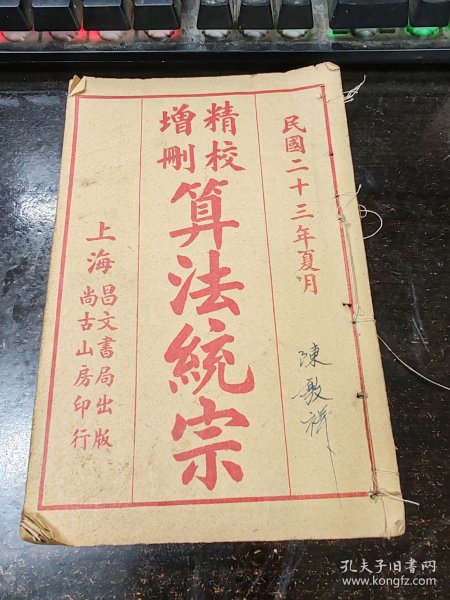 民國二十三年夏月
精校
增刪
算法統宗
上海
昌文書局出版
尚古山房印行
陳敬祥
孔夫子旧书网
www.kongfz.com